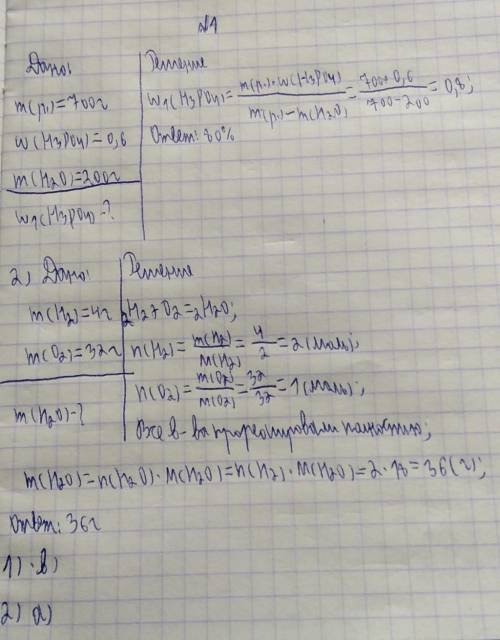 №1
Дано:
m(р.)=700г
w(H3PO4)=0,6
m(H2O)=200г
w1(H3PO4)-?
Решение
w1(H3PO4)= m(р.)·w(H3PO4) / m(р.)-m(H2O) = 700·0,6 / 700-200 = 0,8;
Ответ: 80%
2) Дано:
m(H2)=4г
m(O2)=32г
m(H2O)-?
Решение
2H2+O2=2H2O;
n(H2)= m(H2) / M(H2) = 4 / 2 =2(моль);
n(O2)= m(O2) / m(O2) = 32 / 32 =1(моль);
Все в-ва прореагировали полностью;
m(H2O)=n(H2O)·M(H2O)=n(H2)·M(H2O)=2·18=36(г);
Ответ: 36г
1) в)
2) а)